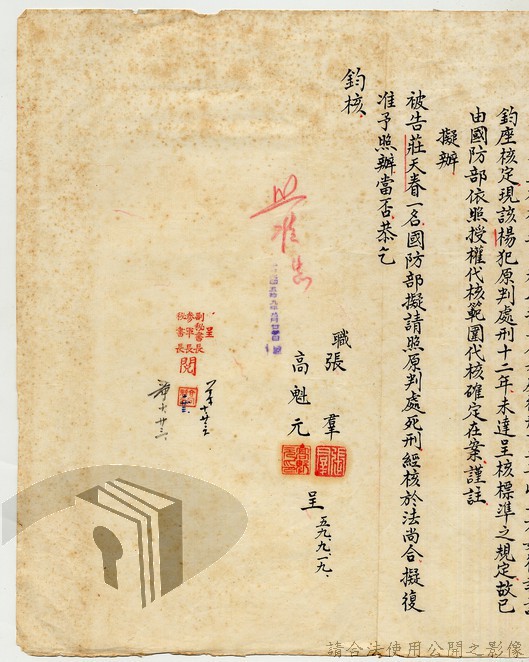 鈞座核定現該楊犯原判處刑十二年未達呈核標準之規定故已
由國防部依照授權代核範圍代核確定在案謹註
擬辦
被告莊天春一名國防部擬請照原判處死刑經核於法尚合擬復
准予照辦當否恭乞
鈞核
職張群
高魁元
呈
五九、九、一九、
照准
副秘書長
參軍長
秘書長
呈
閱
請合法使用公開之影像